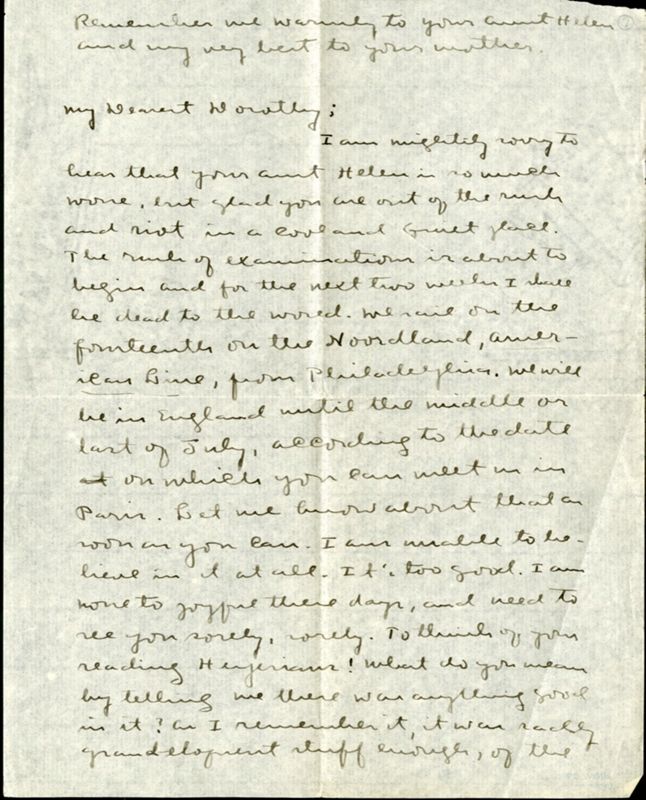 Remember me warmly to your aunt Helen
and my very best to your mother.
My Dearest Dorothy;
I am mightily sorry to
hear that your aunt Helen is so much
worse, but glad you are out of the rush
and riot in a cool and quiet place.
The rush of examinations is about to
begin and for the next two weeks I shall
be dead to the world. We sail on the
fourteenth on the Noordland, Amer-
ican Line, from Philadelphia. We will
be in England until the middle or
last of July, according to the date
at on which you can meet us in
Paris. Let me know about that as
soon as you can. I am unable to be-
lieve in it at all. It's too good. I am
none to joyful these days, and need to
see you sorely, sorely. To think of your
reading
What do you mean
by telling me there was anything good
in it? As I remember it, it was sadly
grandeloquent stuff enough, of the